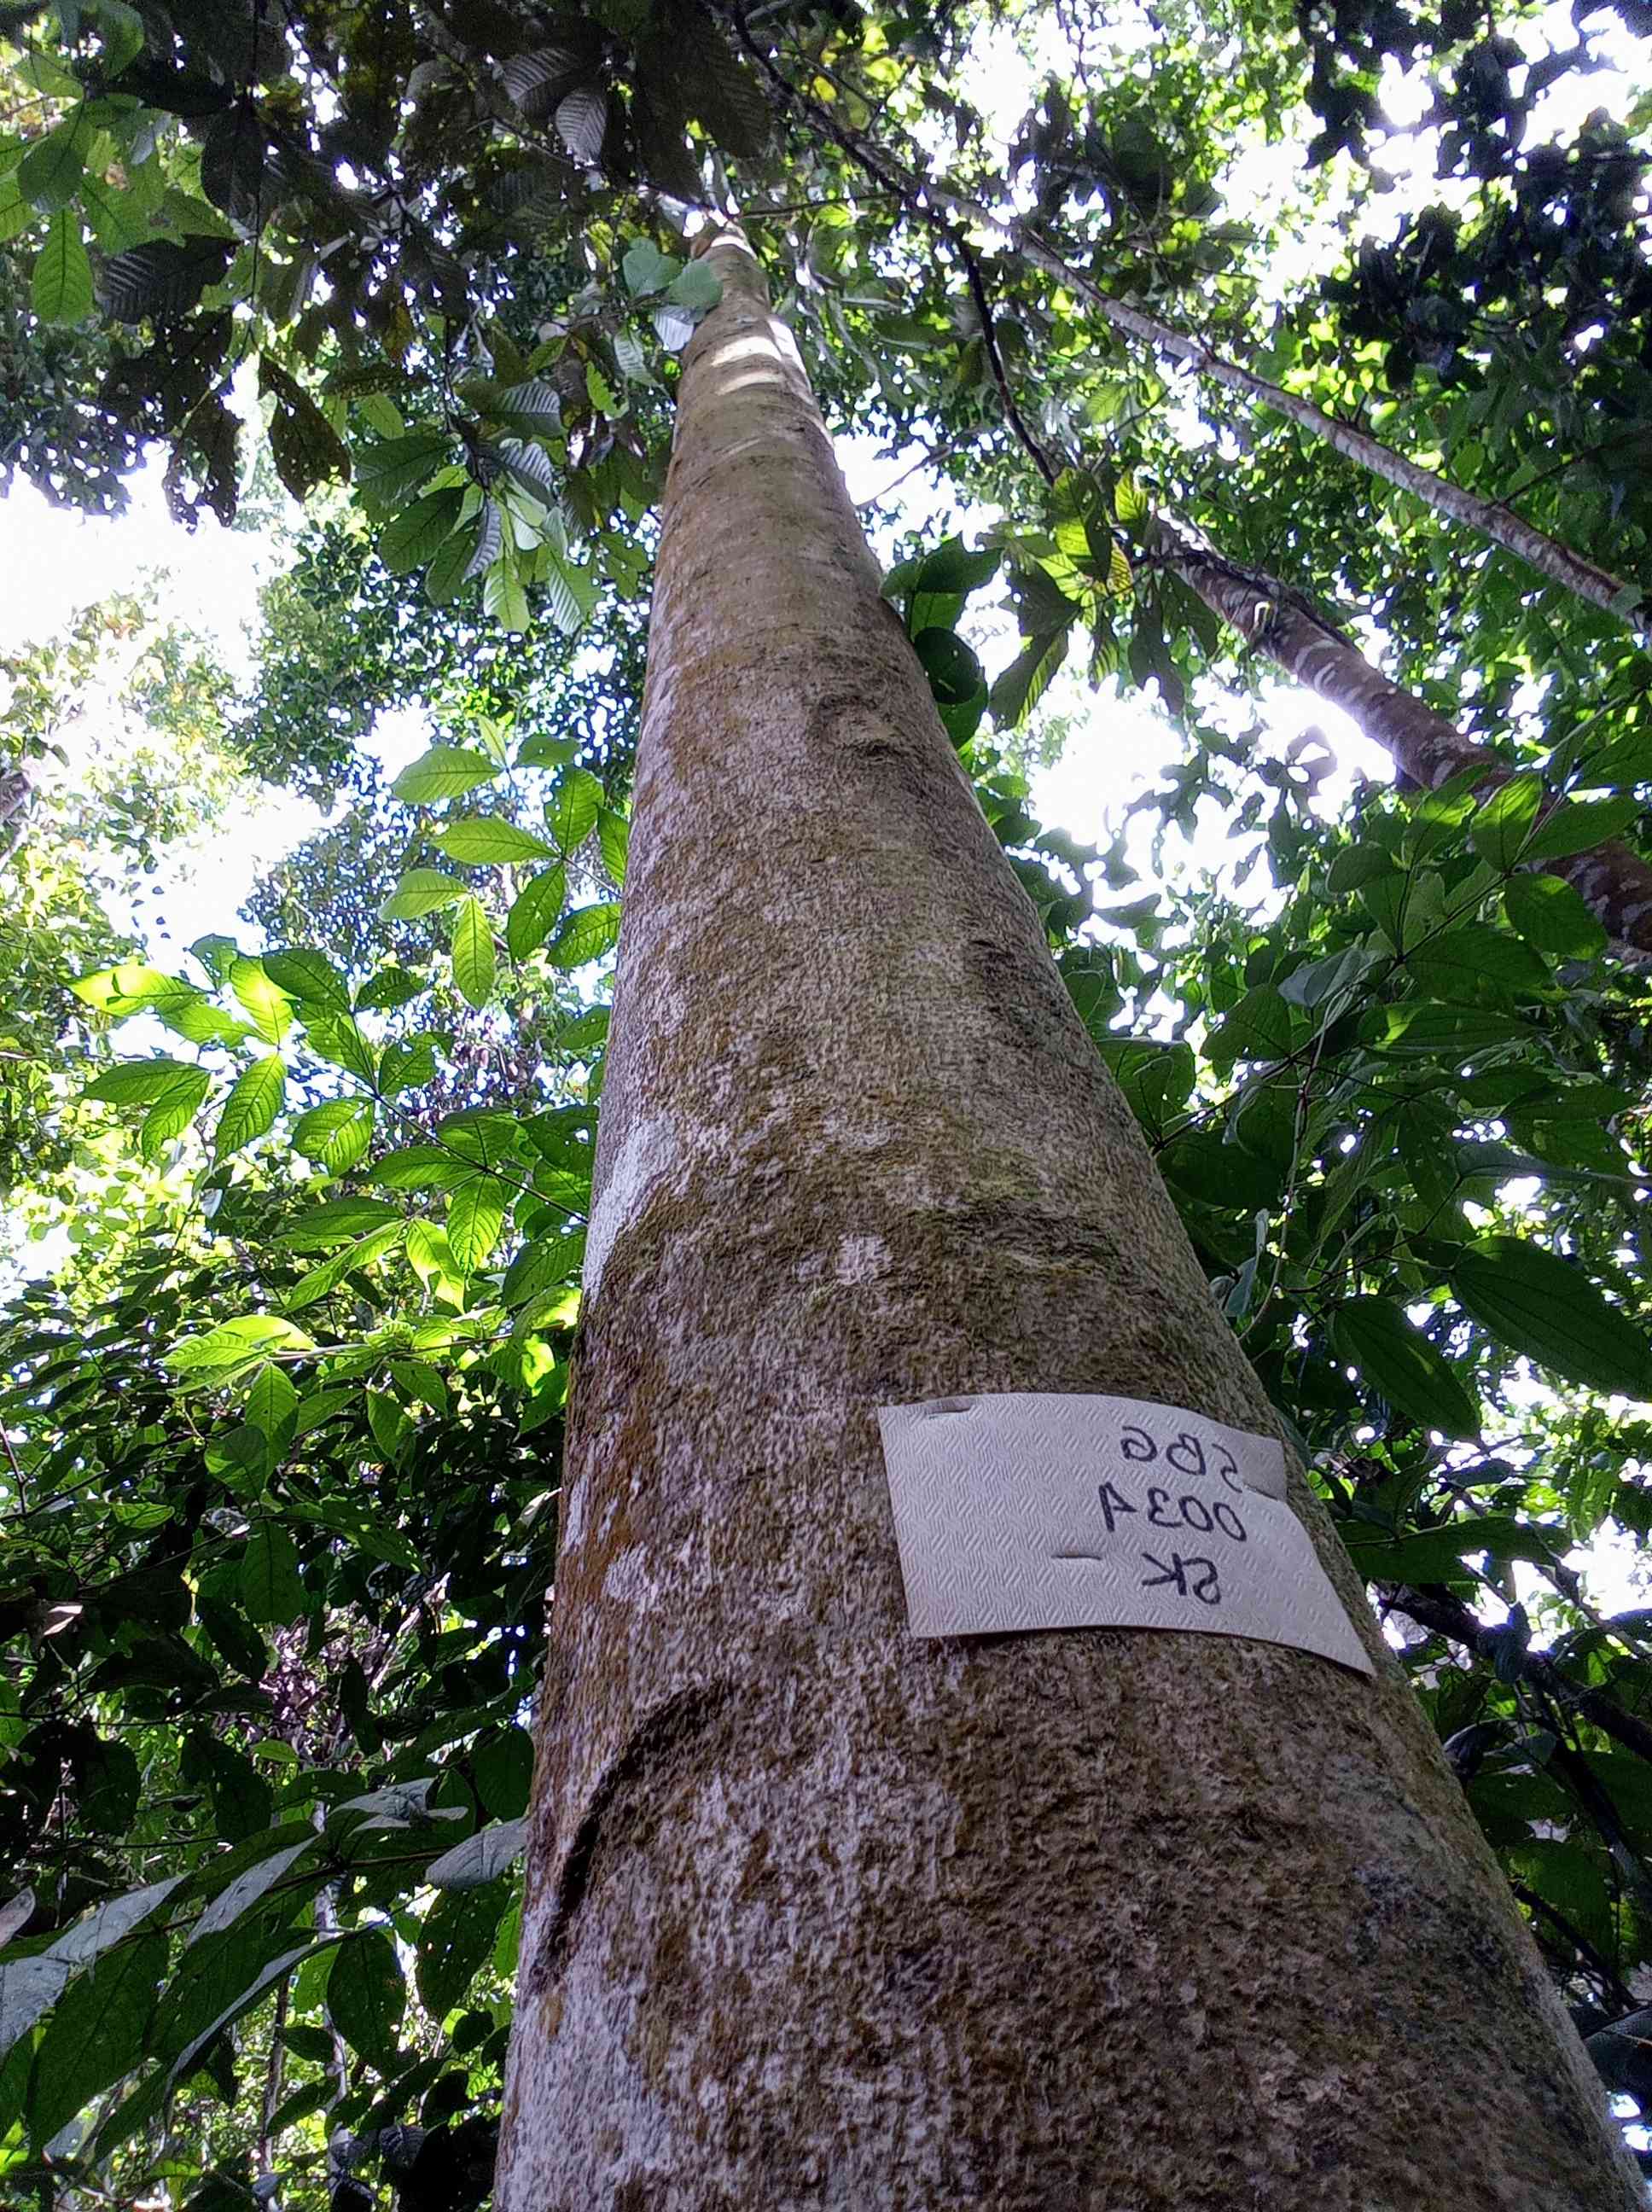 SBG
003A
SK